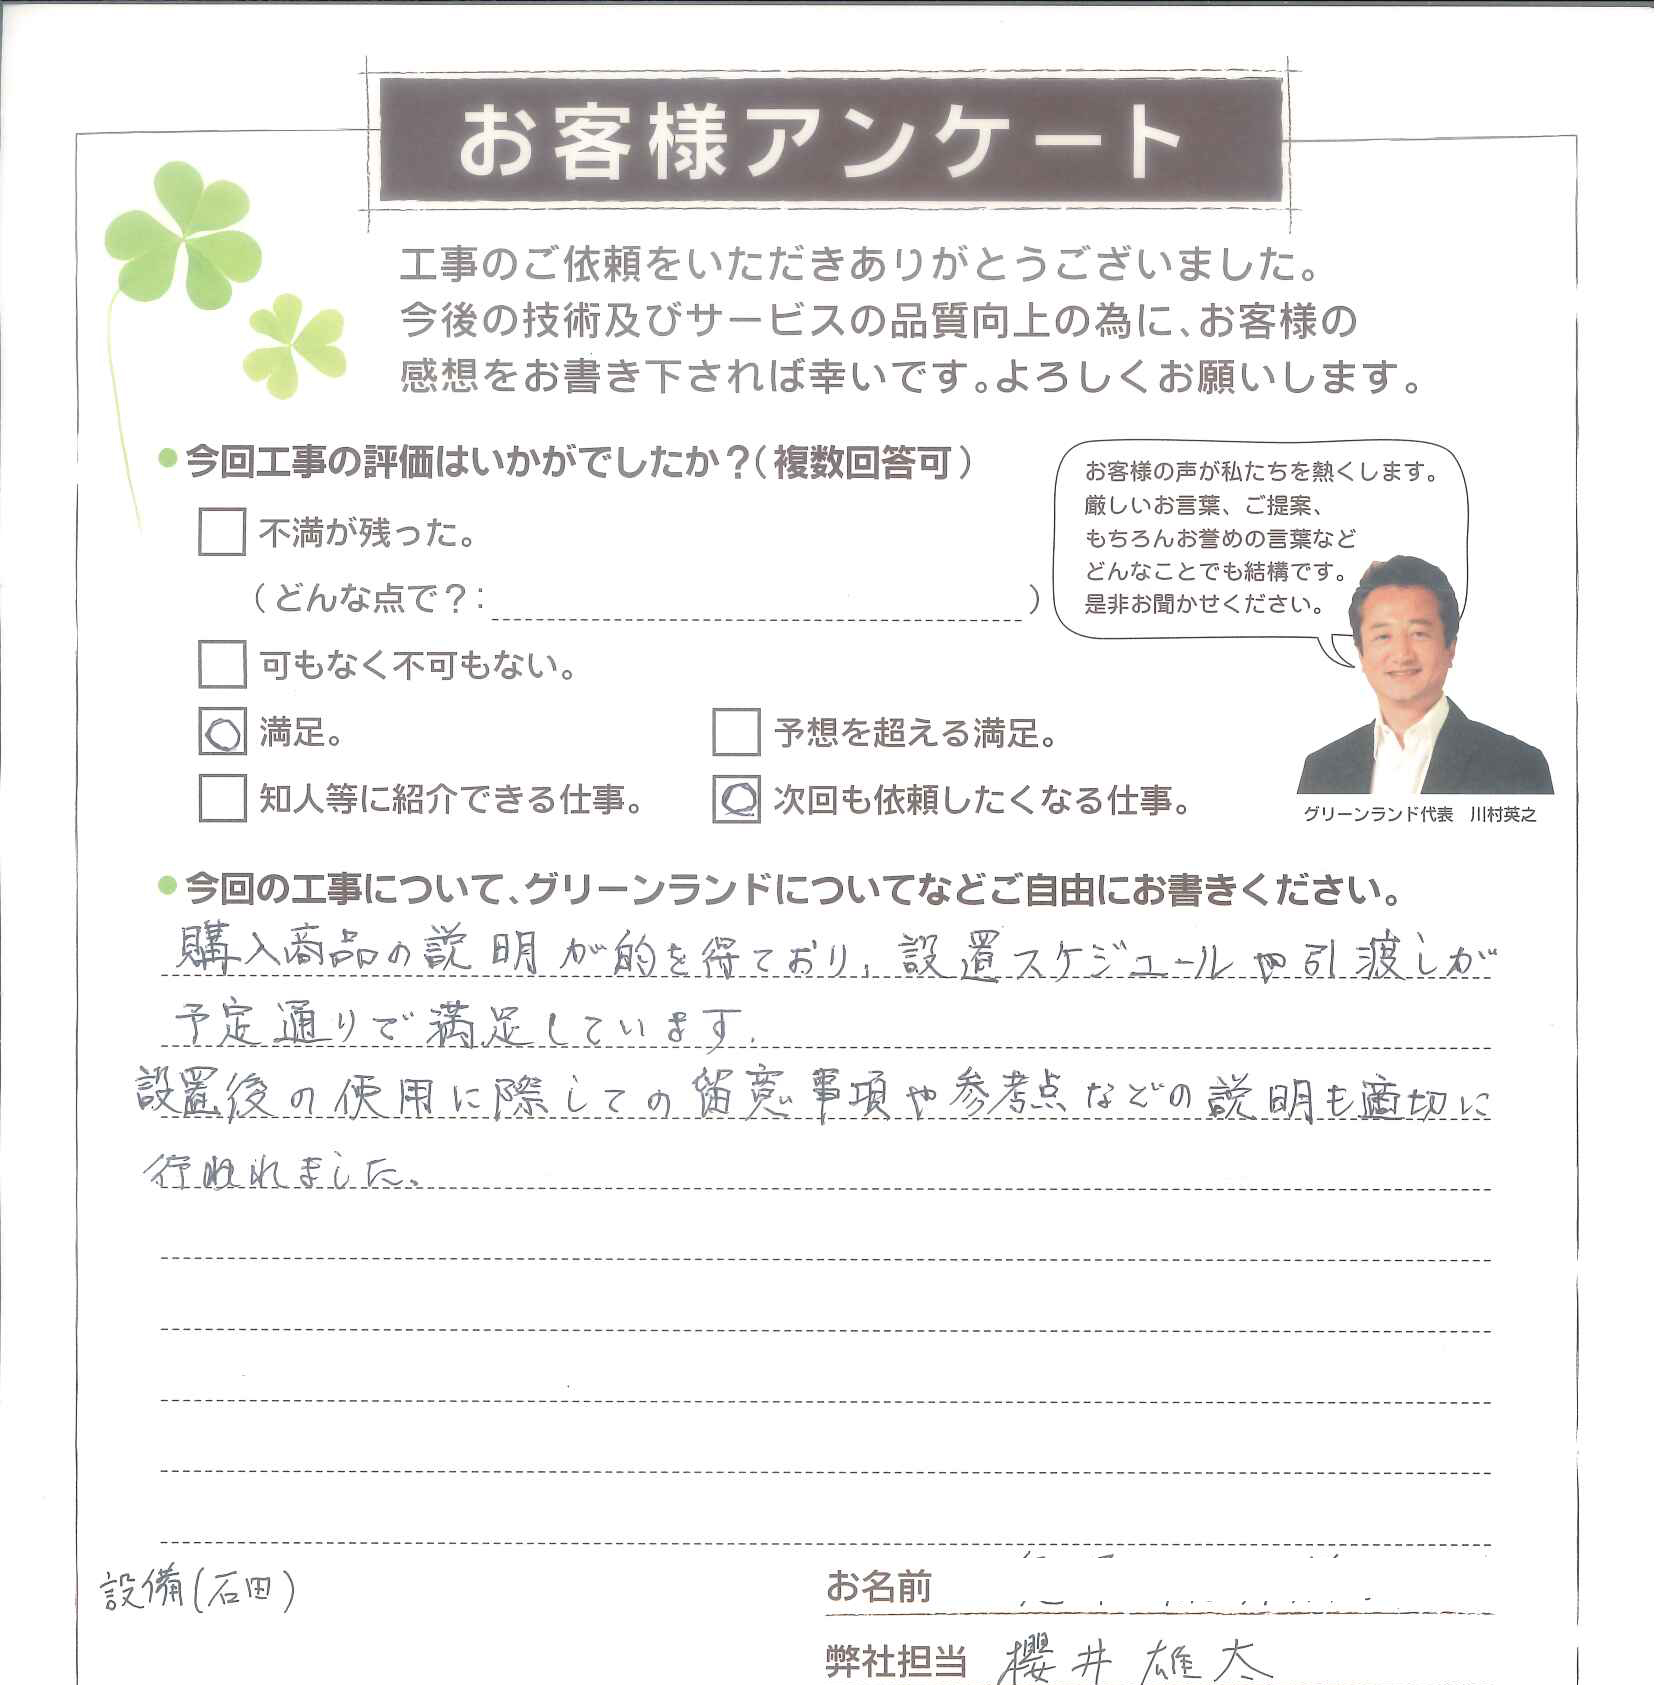 お客様アンケート
工事のご依頼をいただきありがとうございました。
今後の技術及びサービスの品質向上の為に、お客様の
感想をお書き下されば幸いです。よろしくお願いします。
今回工事の評価はいかがでしたか？（複数回答可）
不満が残った。
（どんな点で？：　）
可もなく不可もない。
満足。
予想を超える満足。
知人等に紹介できる仕事。
次回も依頼したくなる仕事。
お客様の声が私たちを熱くします。
厳しいお言葉、ご提案、
もちろんお誉めの言葉など
どんなことでも結構です。
是非お聞かせください。
グリーンランド代表　川村英之
今回の工事について、グリーンランドについてなどご自由にお書きください。
購入商品の説明が的を得ており、設置スケジュールや引渡しが
予定通りで満足しています。
設置後の使用に際しての留意事項や参考点などの説明も適切に
行われました。
設備(石田)
お名前
弊社担当 櫻井雄太